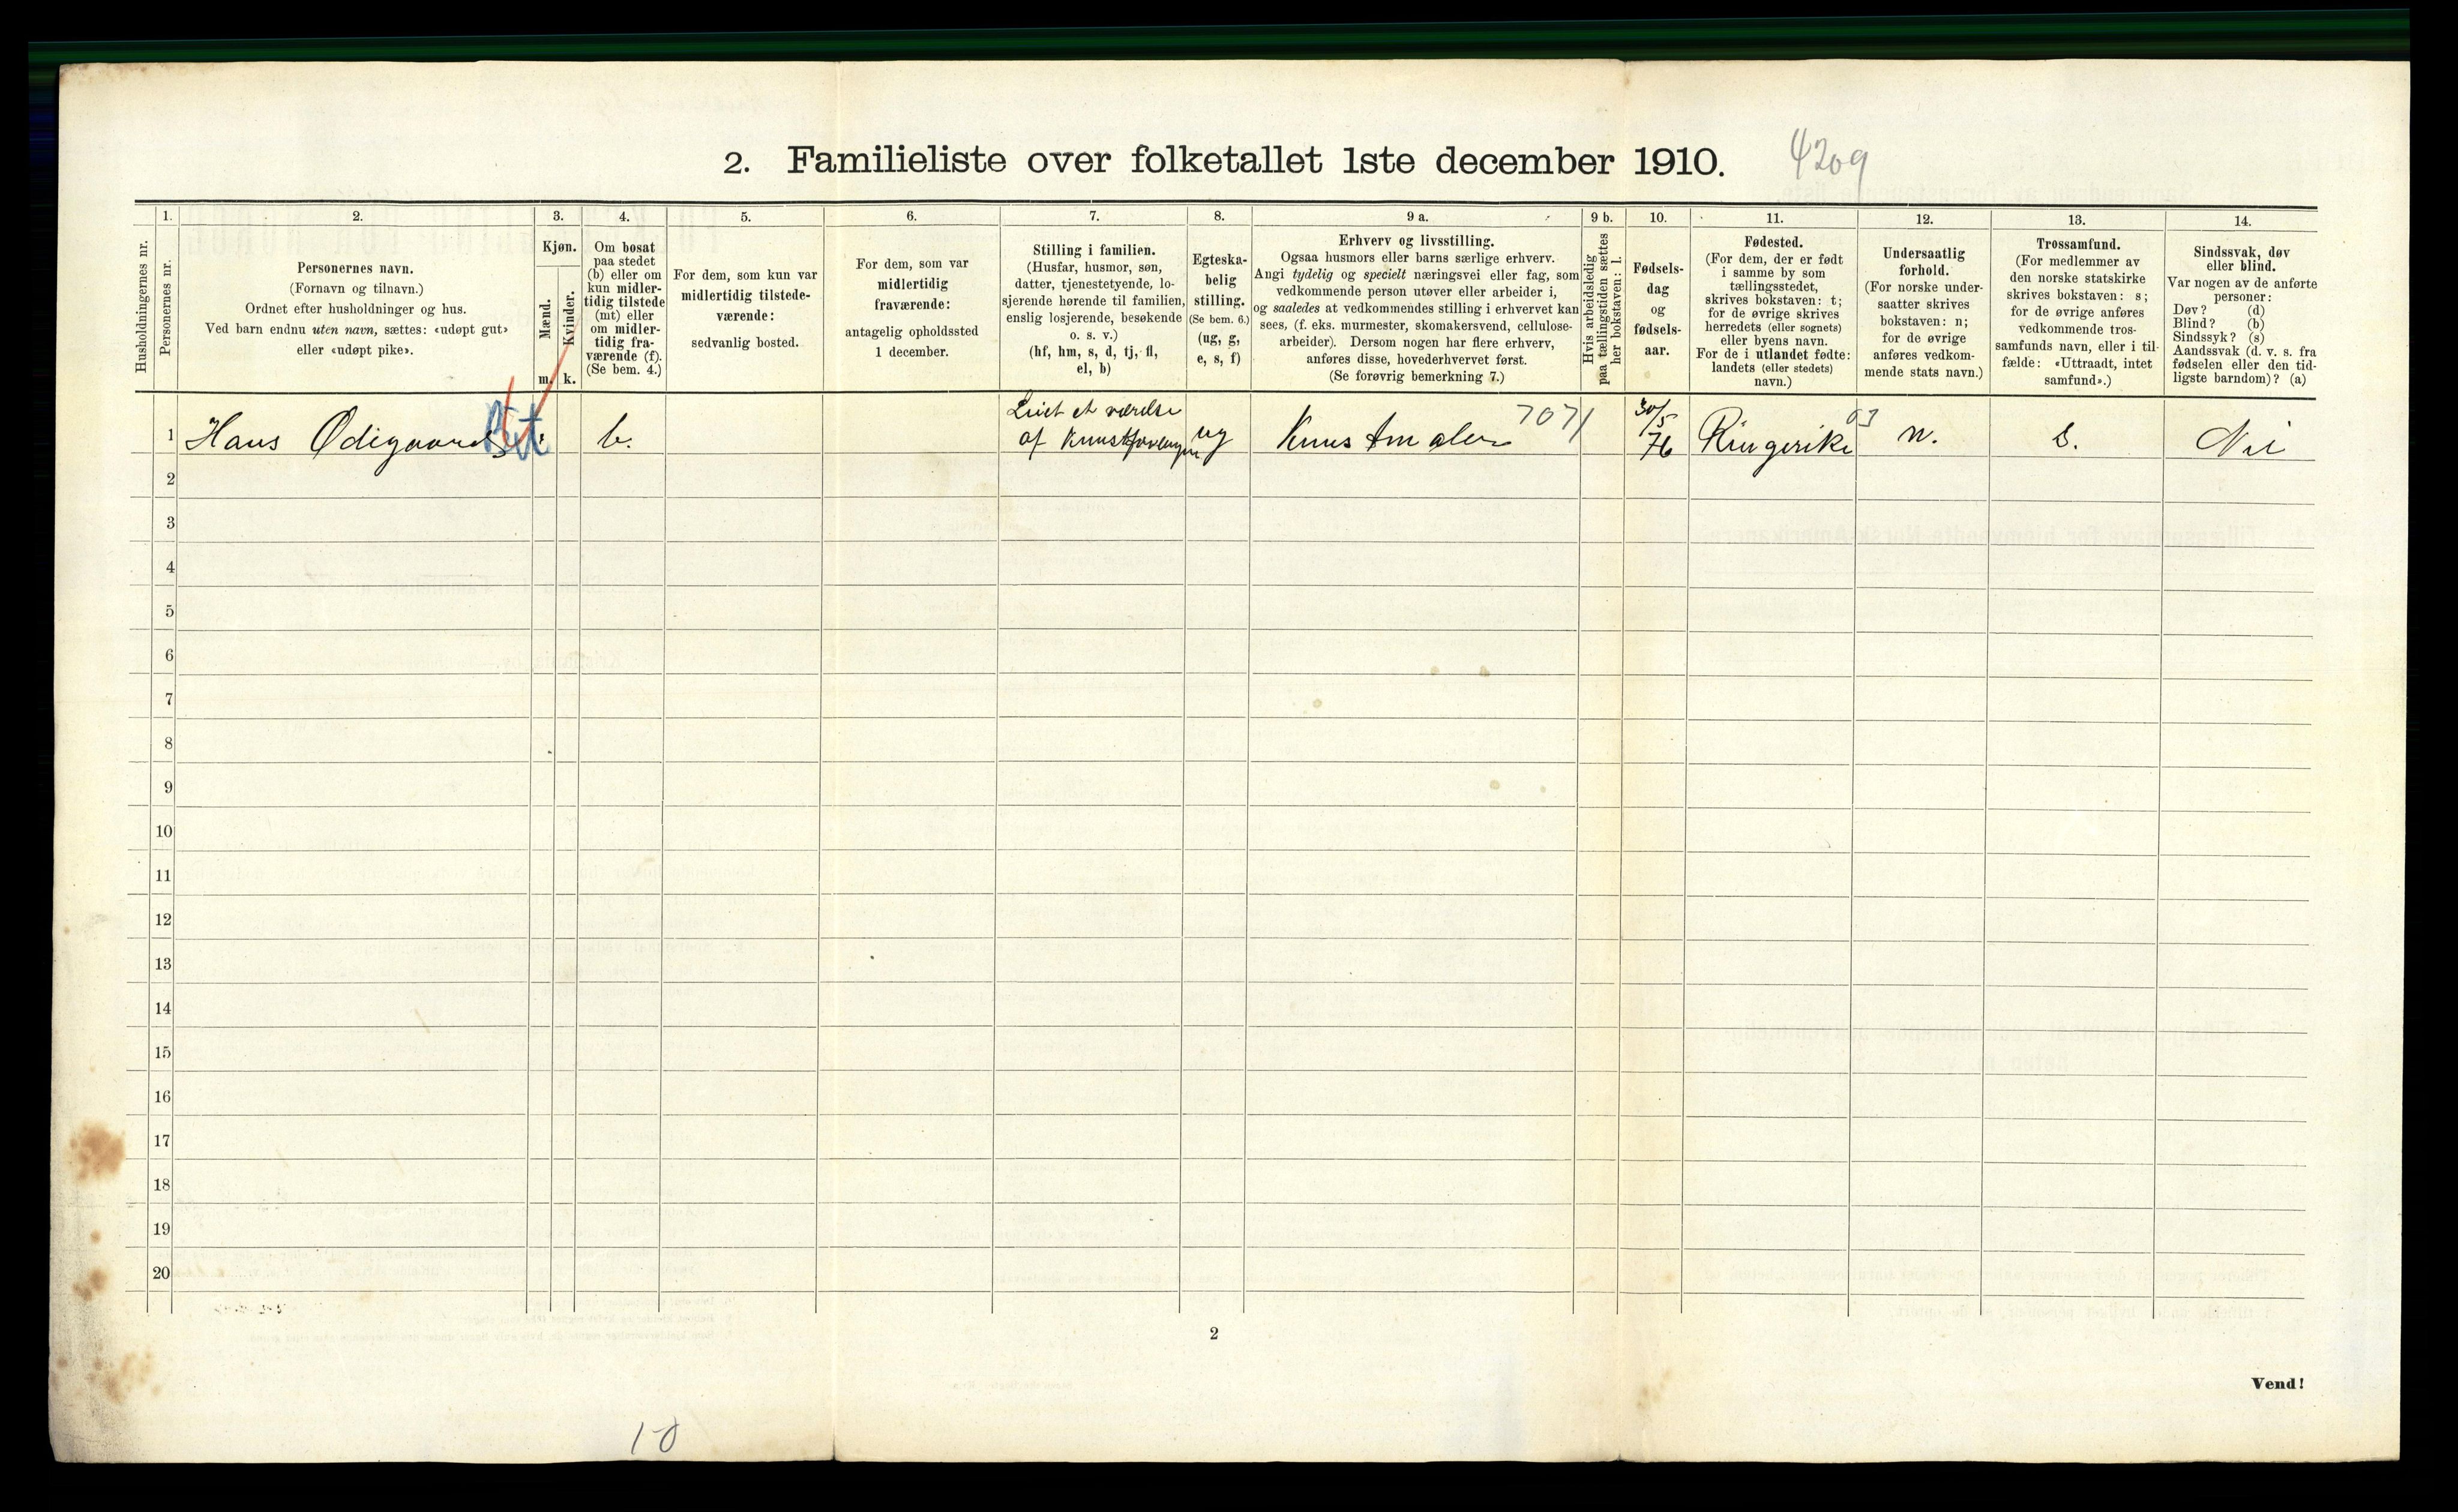 2. Familieliste over folketallet 1ste december 1910.
4209
Husholdningernes nr.
1.
Personernes nr.
2.
Personernes navn.
(Fornavn og tilnavn.)
Ordnet efter husholdninger og hus.
Ved barn endnu uten navn, sættes: «udøpt gut»
eller «udøpt pike».
3.
Kjøn.
Mænd.
Kvinder.
m. k.
4.
Om bosat
paa stedet
(b) eller om
kun midler-
tidig tilstede
(mt) eller
om midler-
tidig fra-
værende (f).
(Se bem. 4.)
5.
For dem, som kun var
midlertidig tilstede-
værende:
sedvanlig bosted.
6.
For dem, som var
midlertidig
fraværende:
antagelig opholdssted
1 december.
7.
Stilling i familien.
(Husfar, husmor, søn,
datter, tjenestetyende, lo-
sjerende hørende til familien,
enslig losjerende, besøkende
o. s. v.)
(hf, hm, s, d, tj, fl,
el, b)
8.
Egteska-
belig
stilling.
(Se bem. 6.)
(ug, g,
e, s, f)
9 a.
Erhverv og livsstilling.
Ogsaa husmors eller barns særlige erhverv.
Angi tydelig og specielt næringsvei eller fag, som
vedkommende person utøver eller arbeider i,
og saaledes at vedkommendes stilling i erhvervet kan
sees, (f. eks. murmester, skomakersvend, cellulose-
arbeider). Dersom nogen har flere erhverv,
anføres disse, hovederhvervet først.
(Se forøvrig bemerkning 7.)
9 b.
Hvis arbeidsledig
paa tællingstiden sættes
her bokstaven: l.
10.
Fødsels-
dag
og
fødsels-
aar.
11.
Fødested.
(For dem, der er født
i samme by som
tællingsstedet,
skrives bokstaven: t;
for de øvrige skrives
herredets (eller sognets)
eller byens navn.
For de i utlandet fødte:
landets (eller stedets)
navn.)
12.
Undersaatlig
forhold.
(For norske under-
saatter skrives
bokstaven: n;
for de øvrige
anføres vedkom-
mende stats navn.)
13.
Trossamfund.
(For medlemmer av
den norske statskirke
skrives bokstaven: s;
for de øvrige anføres
vedkommende tros-
samfunds navn, eller i til-
fælde: «Uttraadt, intet
samfund».)
14.
Sindssvak, døv
eller blind.
Var nogen av de anførte
personer:
Døv? (d)
Blind? (b)
Sindssyk? (s)
Aandssvak (d. v. s. fra
fødselen eller den tid-
ligste barndom)? (a)
1 Hans Ødigaard b. Leiet et værelse
af Kunstforeningen ug Kunstmaler 7071 30/5
76 Ringerike 03 n. S. Nei
2
3
4
5
6
7
8
9
10
11
12
13
14
15
16
17
18
19
20
2
Vend!
10